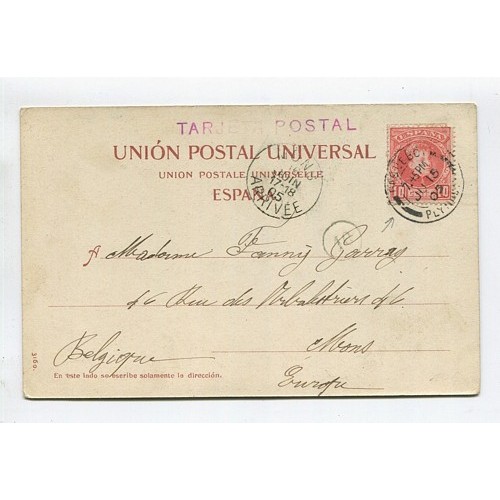 TARJETA POSTAL
UNIÓN POSTAL UNIVERSAL
UNION POSTALE UNIVERSELLE
ESPAÑA
ESPAÑA
10
PLYM
JUIN
17-18
05
ARRIVÉE
A Madame Fanny Garray
46 Rue des Arbalestriers 46
Mons
Belgique
Europe
3160.
En este lado se escribe solamente la dirección.